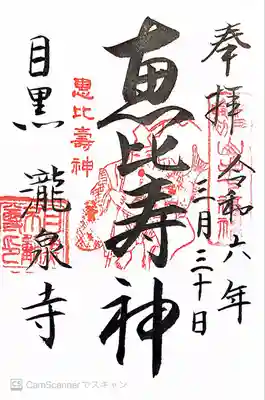 奉拝 令和六年
三月三十日
恵比寿神
惠比壽神
目黒 瀧泉寺
CS CamScannerでスキャン